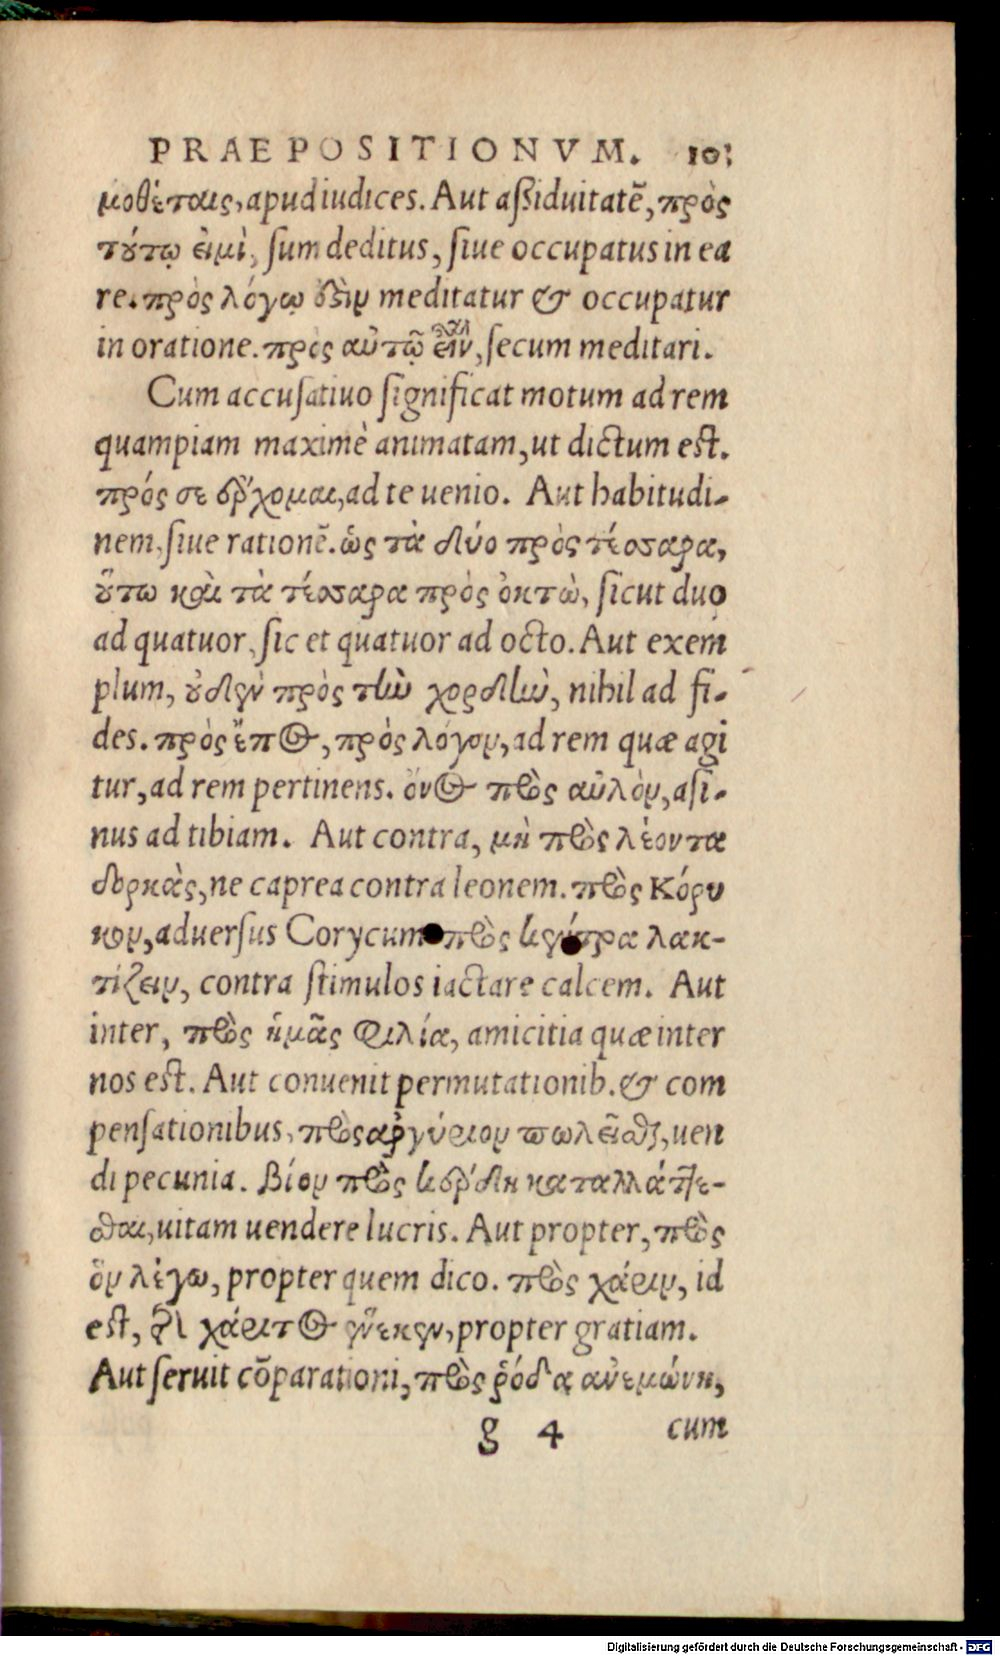 PRAEPOSITIONVM. 103
μοθέταις, apud iudices. Aut aſsiduitatē, πρὸς
τύτῳ εἰμὶ, ſum deditus, ſiue occupatus in ea
re. πρὸς λόγῳ ὅλην meditatur & occupatur
in oratione. πρὸς αὑτῷ εἶναι, ſecum meditari.
Cum accuſatiuo ſignificat motum ad rem
quampiam maximè animatam, ut dictum est.
πρός σε ἔρχομαι, ad te uenio. Aut habitudi-
nem, ſiue rationē. ὡς τὰ δύο πρὸς τέσσαρα,
οὕτω καὶ τὰ τέσσαρα πρὸς ὀκτὼ, ſicut duo
ad quatuor, ſic et quatuor ad octo. Aut exem
plum, οὐδὲν πρὸς τὴν χορδὴν, nihil ad fi-
des. πρὸς ἔπος, πρὸς λόγον, ad rem quæ agi
tur, ad rem pertinens. ὄνος πρὸς αὐλὸν, aſi-
nus ad tibiam. Aut contra, μὴ πρὸς λέοντα
δορκὰς, ne caprea contra leonem. πρὸς Κόρυ
κον, aduerſus Corycum πρὸς κέντρα λακ-
τίζειν, contra ſtimulos iactare calcem. Aut
inter, πρὸς ἡμᾶς φιλία, amicitia quæ inter
nos est. Aut conuenit permutationib. & com
penſationibus, πρὸς ἀργύριον πωλεῖσθαι, uen
di pecunia. βίον πρὸς κέρδη καταλλάττε-
σθαι, uitam uendere lucris. Aut propter, πρὸς
ὃν λέγω, propter quem dico. πρὸς χάριν, id
est, χάριτος ἕνεκεν, propter gratiam.
Aut ſeruit cōparationi, πρὸς ῥόδα ἀνεμώνη,
g 4 cum
Digitalisierung gefördert durch die Deutsche Forschungsgemeinschaft - DFG